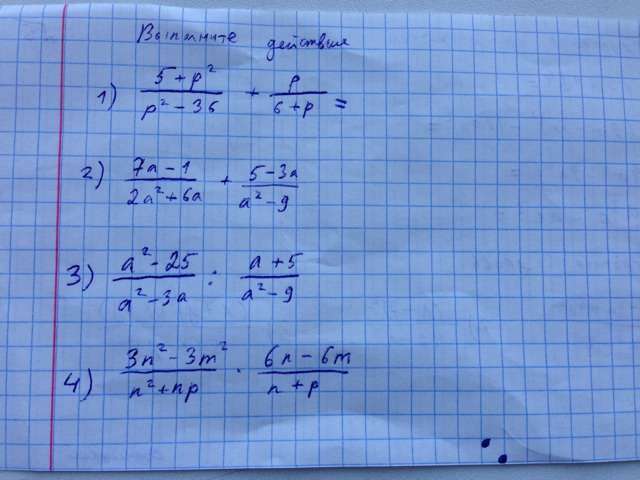 Выполните действия
1) (5+p²)/(p²-36) + p/(6+p) =
2) (7a-1)/(2a²+6a) + (5-3a)/(a²-9)
3) (a²-25)/(a²-3a) : (a+5)/(a²-9)
4) (3n²-3m²)/(n²+np) · (6n-6m)/(n+p)